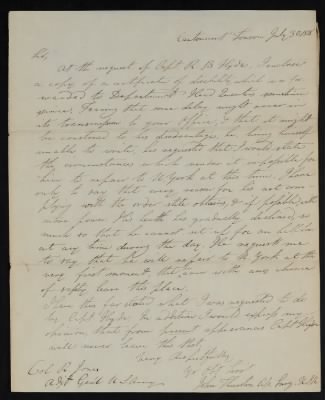 Cantonment July 30 183
Sir,
At the request of Capt R. B Hyde, I enclose
a copy of a certificate of disability which was for
warded to Department Head Quarters
since. Fearing that some delay might occur in
its transmission to your Office, & that it might
be construed to his disadvantage, he being himself
unable to write, he requests that I would state
the circumstances which render it impossible for
him to repair to N York at this time. I have
only to say that every reason for his not com
plying with the order still obtains, & if possible, with
more power. His health has gradually declined, so
much so that he cannot set up for an half hour
at any time during the day. He requests me
to say that he will repair to N York at the
very first moment that he can with any chance
of safety leave this place.
I have thus far stated what I was requested to do
by Capt Hyde. In addition I would express my
opinion, that from present appearances Capt Hyde
will never leave this Post.
Very Respectfully
Yr Obt Servt
Col. R. Jones
Adjt Genl U S Army
John Thurston Asst Surg. U.S.A.